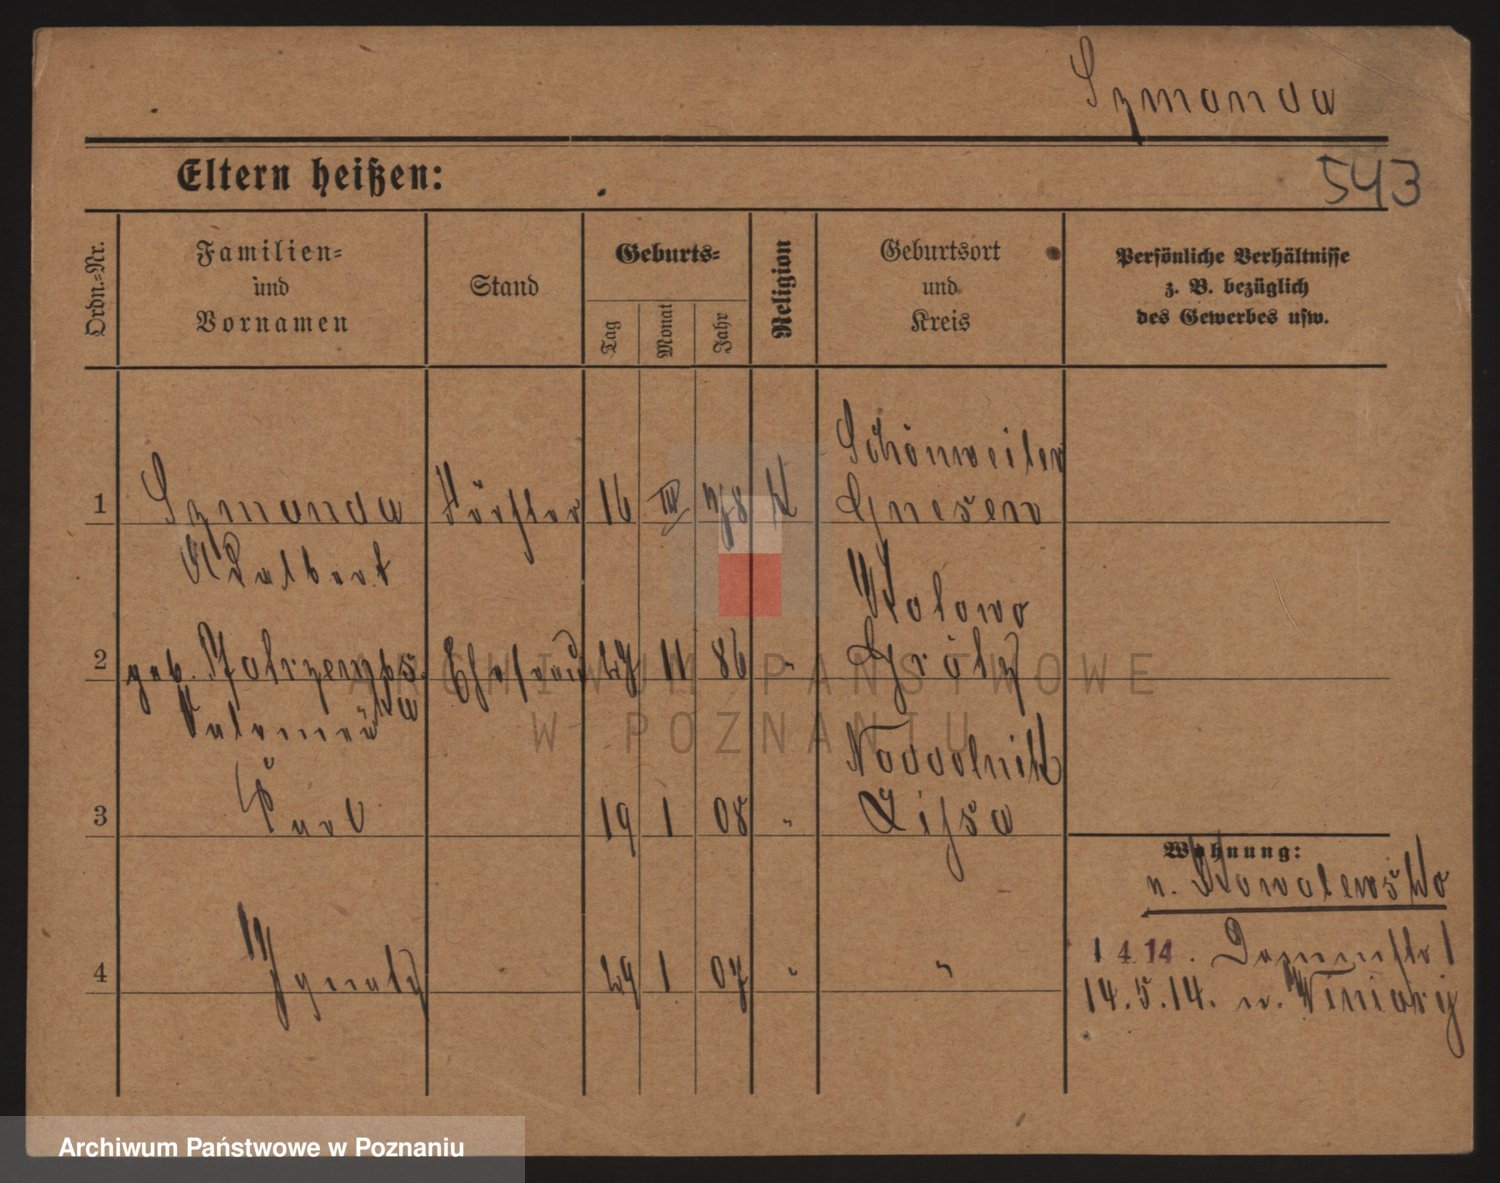 Szmanda
543
Eltern heißen:
Ordn.-Nr.
Familien-
und
Vornamen
Stand
Geburts-
Tag
Monat
Jahr
Religion
Geburtsort
und
Kreis
Persönliche Verhältnisse
z. B. bezüglich
des Gewerbes usw.
Schönweiler
1 Szmanda Förster 16 III 78 K Gnesen
Adalbert
Kolowo
2 geb. Ehefrau 27 11 86 " Grätz
Salomea
Karl
3 19 1 08 " Lissa
4 Ignatz 29 1 07 " "
Wohnung:
n. Kowalewsko
1 4.14.
14.5.14. n. Winiary
ARCHIWUM PAŃSTWOWE
W POZNANIU
Archiwum Państwowe w Poznaniu